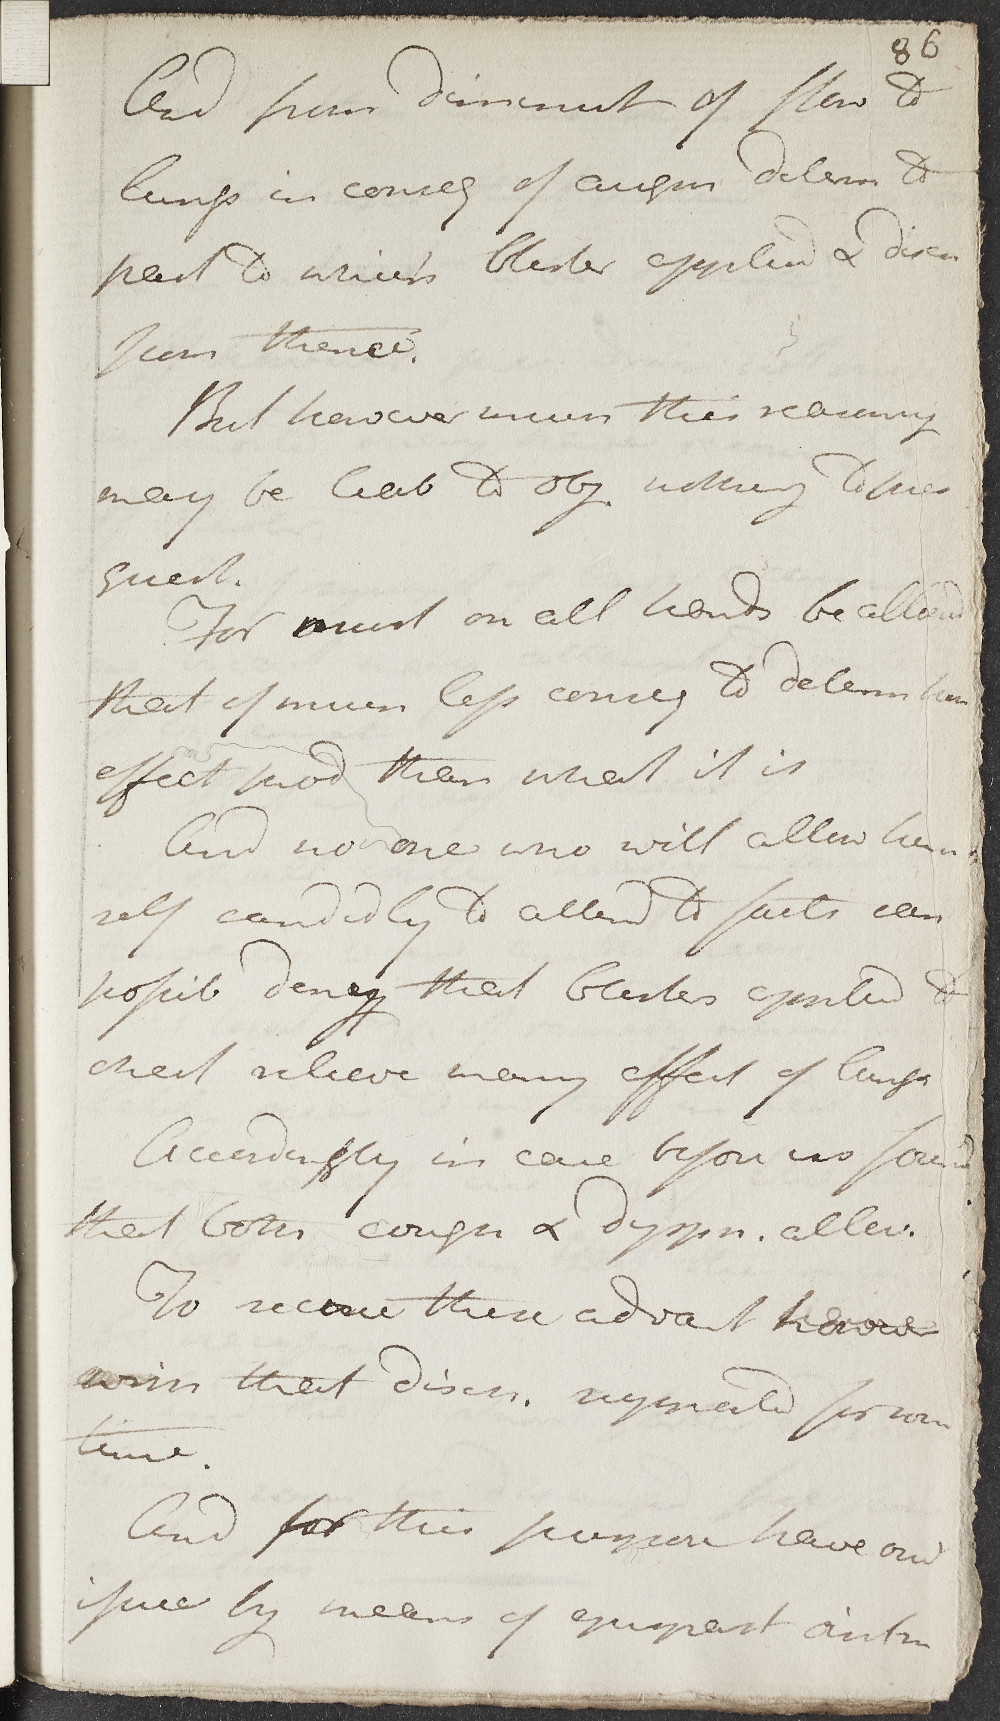 86
And from diminut of flow to
lungs in conseq of augm determ to
part to which blister applied & disch
from thence.
But however much this reasoning
may be liab to obj. nothing to pres
quest.
For must on all hands be allowd
that of much less conseq to determ how
effect prod than what it is
And no one who will allow him
self candidly to attend to facts can
possib deny that blisters applied to
chest relieve many affect of lungs
Accordingly in case before us found
that both cough & dyspn. allev.
To secure these advant however
wish that disch. repeated for som
time.
And for this purpose have ord
issue by means of epispast ointm